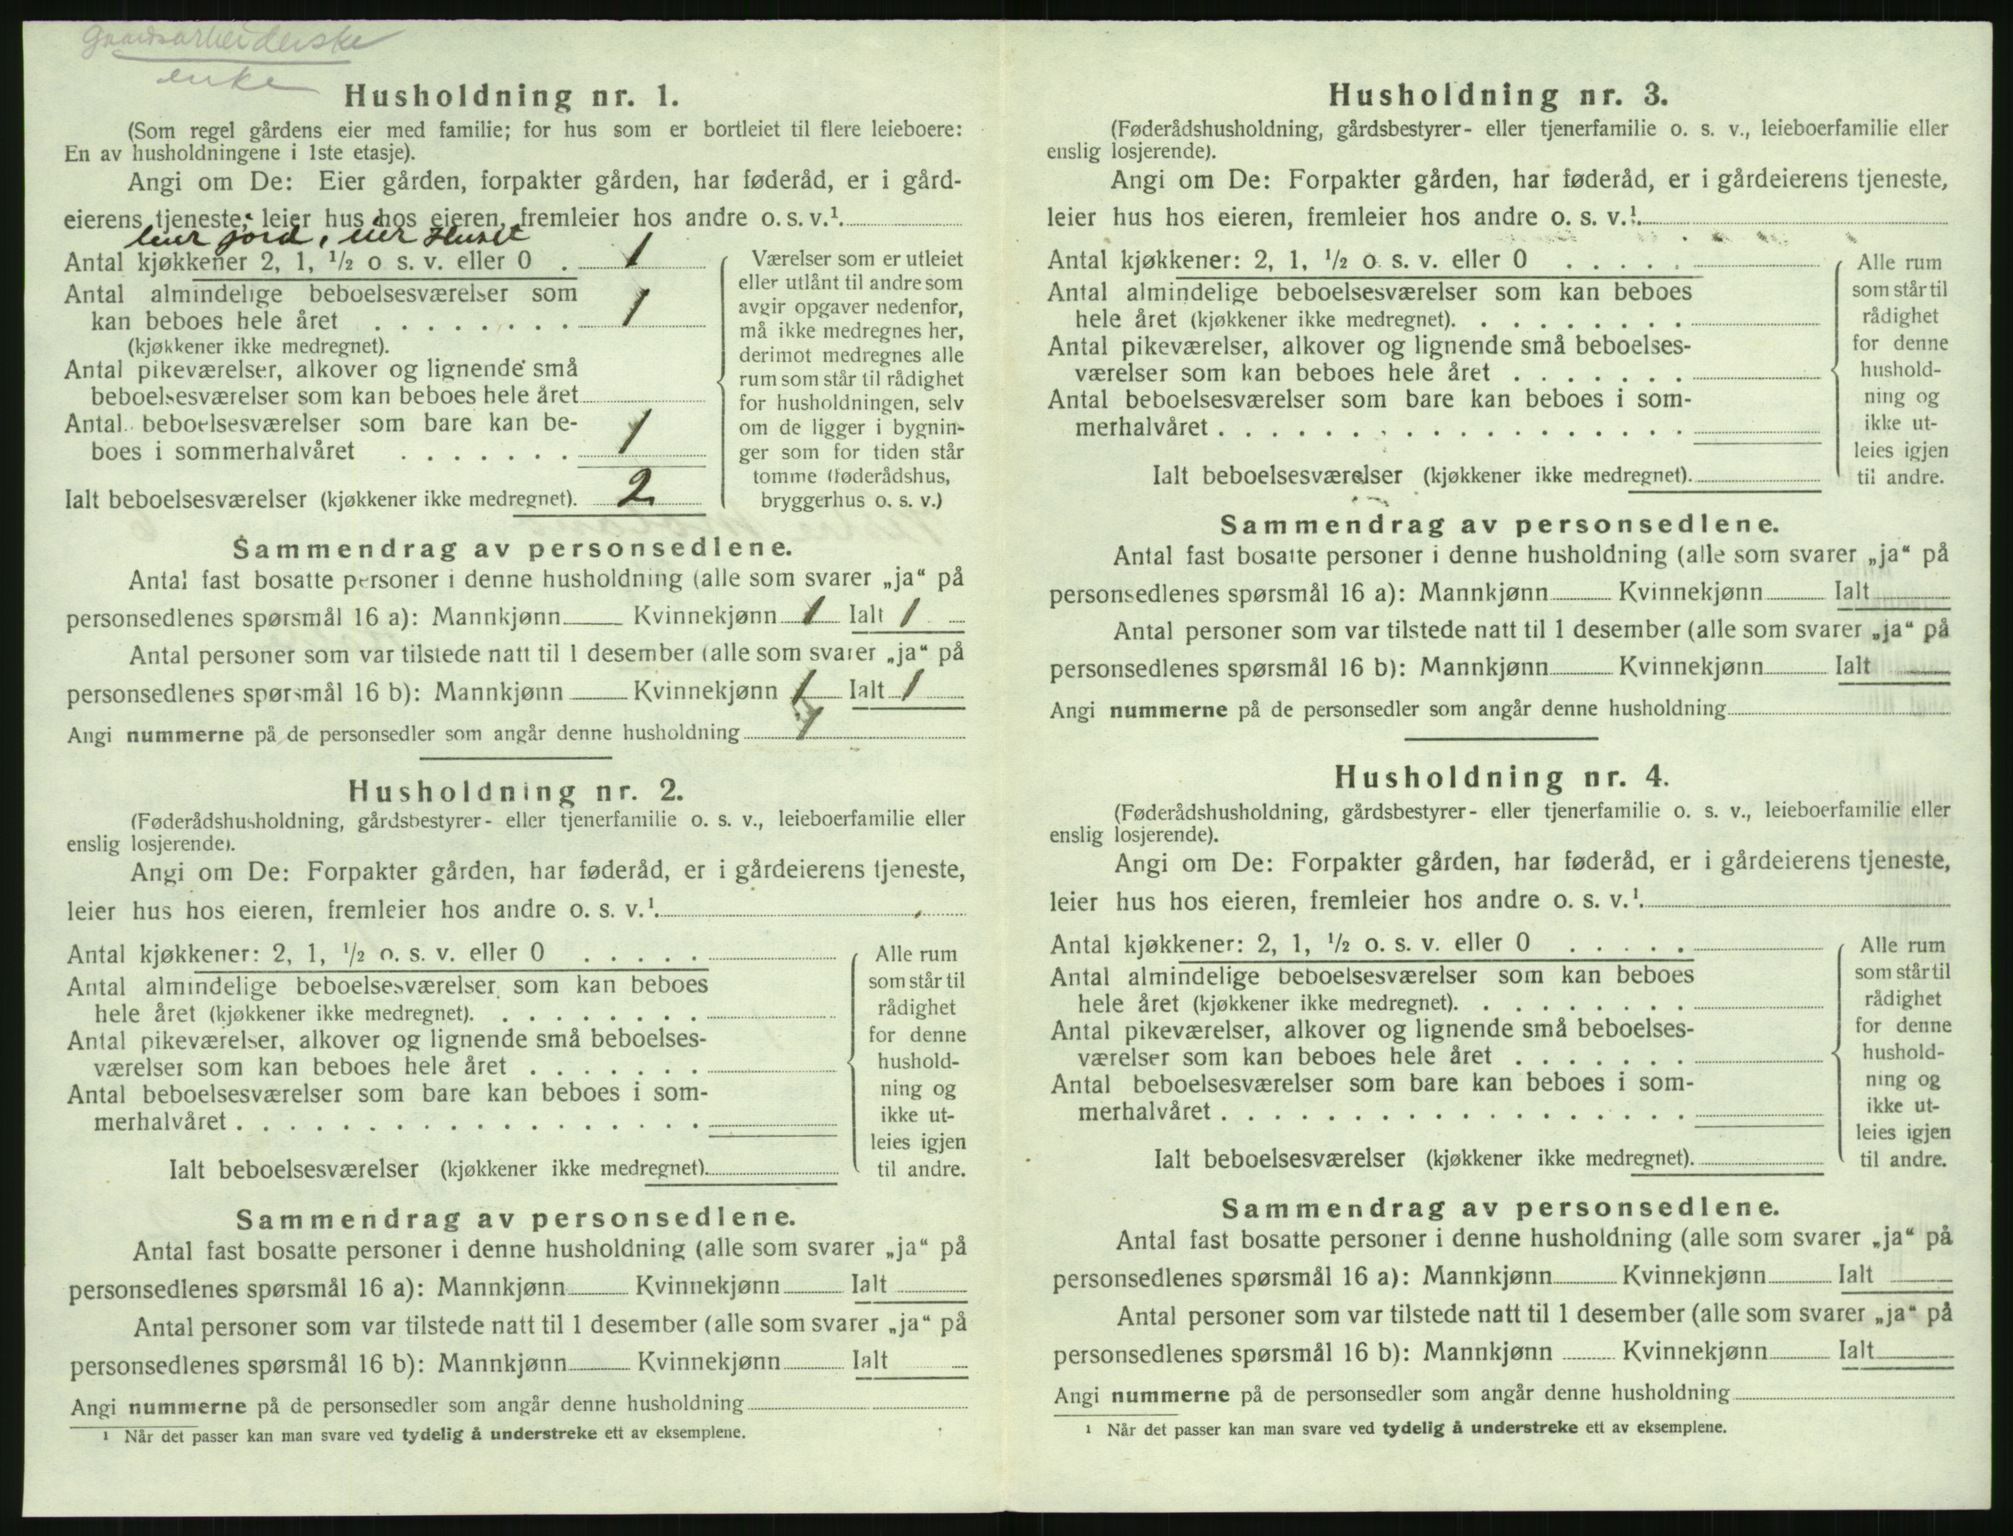 Gaardsarbeiderske
enke
Husholdning nr. 1.
(Som regel gårdens eier med familie; for hus som er bortleiet til flere leieboere:
En av husholdningene i 1ste etasje).
Angi om De: Eier gården, forpakter gården, har føderåd, er i gård-
eierens tjeneste, leier hus hos eieren, fremleier hos andre o. s. v.¹.
leier jord, eier Huset
Antal kjøkkener 2, 1, ½ o s. v. eller 0 . 1
Antal almindelige beboelsesværelser som
kan beboes hele året . . . . . . . . 1
(kjøkkener ikke medregnet).
Antal pikeværelser, alkover og lignende små
beboelsesværelser som kan beboes hele året
Antal beboelsesværelser som bare kan be-
boes i sommerhalvåret . . . . . . . 1
Ialt beboelsesværelser (kjøkkener ikke medregnet). 2
Værelser som er utleiet
eller utlånt til andre som
avgir opgaver nedenfor,
må ikke medregnes her,
derimot medregnes alle
rum som står til rådighet
for husholdningen, selv
om de ligger i bygnin-
ger som for tiden står
tomme (føderådshus,
bryggerhus o. s. v.)
Sammendrag av personsedlene.
Antal fast bosatte personer i denne husholdning (alle som svarer „ja“ på
personsedlenes spørsmål 16 a): Mannkjønn Kvinnekjønn 1 Ialt 1
Antal personer som var tilstede natt til 1 desember (alle som svarer „ja“ på
personsedlenes spørsmål 16 b): Mannkjønn Kvinnekjønn 1 Ialt 1
Angi nummerne på de personsedler som angår denne husholdning 1
Husholdning nr. 2.
(Føderådshusholdning, gårdsbestyrer- eller tjenerfamilie o. s. v., leieboerfamilie eller
enslig losjerende).
Angi om De: Forpakter gården, har føderåd, er i gårdeierens tjeneste,
leier hus hos eieren, fremleier hos andre o. s. v.¹.
Antal kjøkkener: 2, 1, ½ o. s. v. eller 0 . . . . .
Antal almindelige beboelsesværelser som kan beboes
hele året (kjøkkener ikke medregnet). . . . . . . . .
Antal pikeværelser, alkover og lignende små beboelses-
værelser som kan beboes hele året . . . . . . .
Antal beboelsesværelser som bare kan beboes i som-
merhalvåret . . . . . . . . . . . . . . . . . .
Ialt beboelsesværelser (kjøkkener ikke medregnet).
Alle rum
som står til
rådighet
for denne
hushold-
ning og
ikke ut-
leies igjen
til andre.
Sammendrag av personsedlene.
Antal fast bosatte personer i denne husholdning (alle som svarer „ja“ på
personsedlenes spørsmål 16 a): Mannkjønn Kvinnekjønn Ialt
Antal personer som var tilstede natt til 1 desember (alle som svarer „ja“ på
personsedlenes spørsmål 16 b): Mannkjønn Kvinnekjønn Ialt
Angi nummerne på de personsedler som angår denne husholdning
¹ Når det passer kan man svare ved tydelig å understreke ett av eksemplene.
Husholdning nr. 3.
(Føderådshusholdning, gårdsbestyrer- eller tjenerfamilie o. s. v., leieboerfamilie eller
enslig losjerende).
Angi om De: Forpakter gården, har føderåd, er i gårdeierens tjeneste,
leier hus hos eieren, fremleier hos andre o. s. v.¹.
Antal kjøkkener: 2, 1, ½ o. s. v. eller 0 . . . . .
Antal almindelige beboelsesværelser som kan beboes
hele året (kjøkkener ikke medregnet). . . . . . . . .
Antal pikeværelser, alkover og lignende små beboelses-
værelser som kan beboes hele året . . . . . . .
Antal beboelsesværelser som bare kan beboes i som-
merhalvåret . . . . . . . . . . . . . . . . . .
Ialt beboelsesværelser (kjøkkener ikke medregnet).
Alle rum
som står til
rådighet
for denne
hushold-
ning og
ikke ut-
leies igjen
til andre.
Sammendrag av personsedlene.
Antal fast bosatte personer i denne husholdning (alle som svarer „ja“ på
personsedlenes spørsmål 16 a): Mannkjønn Kvinnekjønn Ialt
Antal personer som var tilstede natt til 1 desember (alle som svarer „ja“ på
personsedlenes spørsmål 16 b): Mannkjønn Kvinnekjønn Ialt
Angi nummerne på de personsedler som angår denne husholdning
Husholdning nr. 4.
(Føderådshusholdning, gårdsbestyrer- eller tjenerfamilie o. s. v., leieboerfamilie eller
enslig losjerende).
Angi om De: Forpakter gården, har føderåd, er i gårdeierens tjeneste,
leier hus hos eieren, fremleier hos andre o. s. v.¹.
Antal kjøkkener: 2, 1, ½ o. s. v. eller 0 . . . . .
Antal almindelige beboelsesværelser som kan beboes
hele året (kjøkkener ikke medregnet). . . . . . . . .
Antal pikeværelser, alkover og lignende små beboelses-
værelser som kan beboes hele året . . . . . . .
Antal beboelsesværelser som bare kan beboes i som-
merhalvåret . . . . . . . . . . . . . . . . . .
Ialt beboelsesværelser (kjøkkener ikke medregnet).
Alle rum
som står til
rådighet
for denne
hushold-
ning og
ikke ut-
leies igjen
til andre.
Sammendrag av personsedlene.
Antal fast bosatte personer i denne husholdning (alle som svarer „ja“ på
personsedlenes spørsmål 16 a): Mannkjønn Kvinnekjønn Ialt
Antal personer som var tilstede natt til 1 desember (alle som svarer „ja“ på
personsedlenes spørsmål 16 b): Mannkjønn Kvinnekjønn Ialt
Angi nummerne på de personsedler som angår denne husholdning
¹ Når det passer kan man svare ved tydelig å understreke ett av eksemplene.